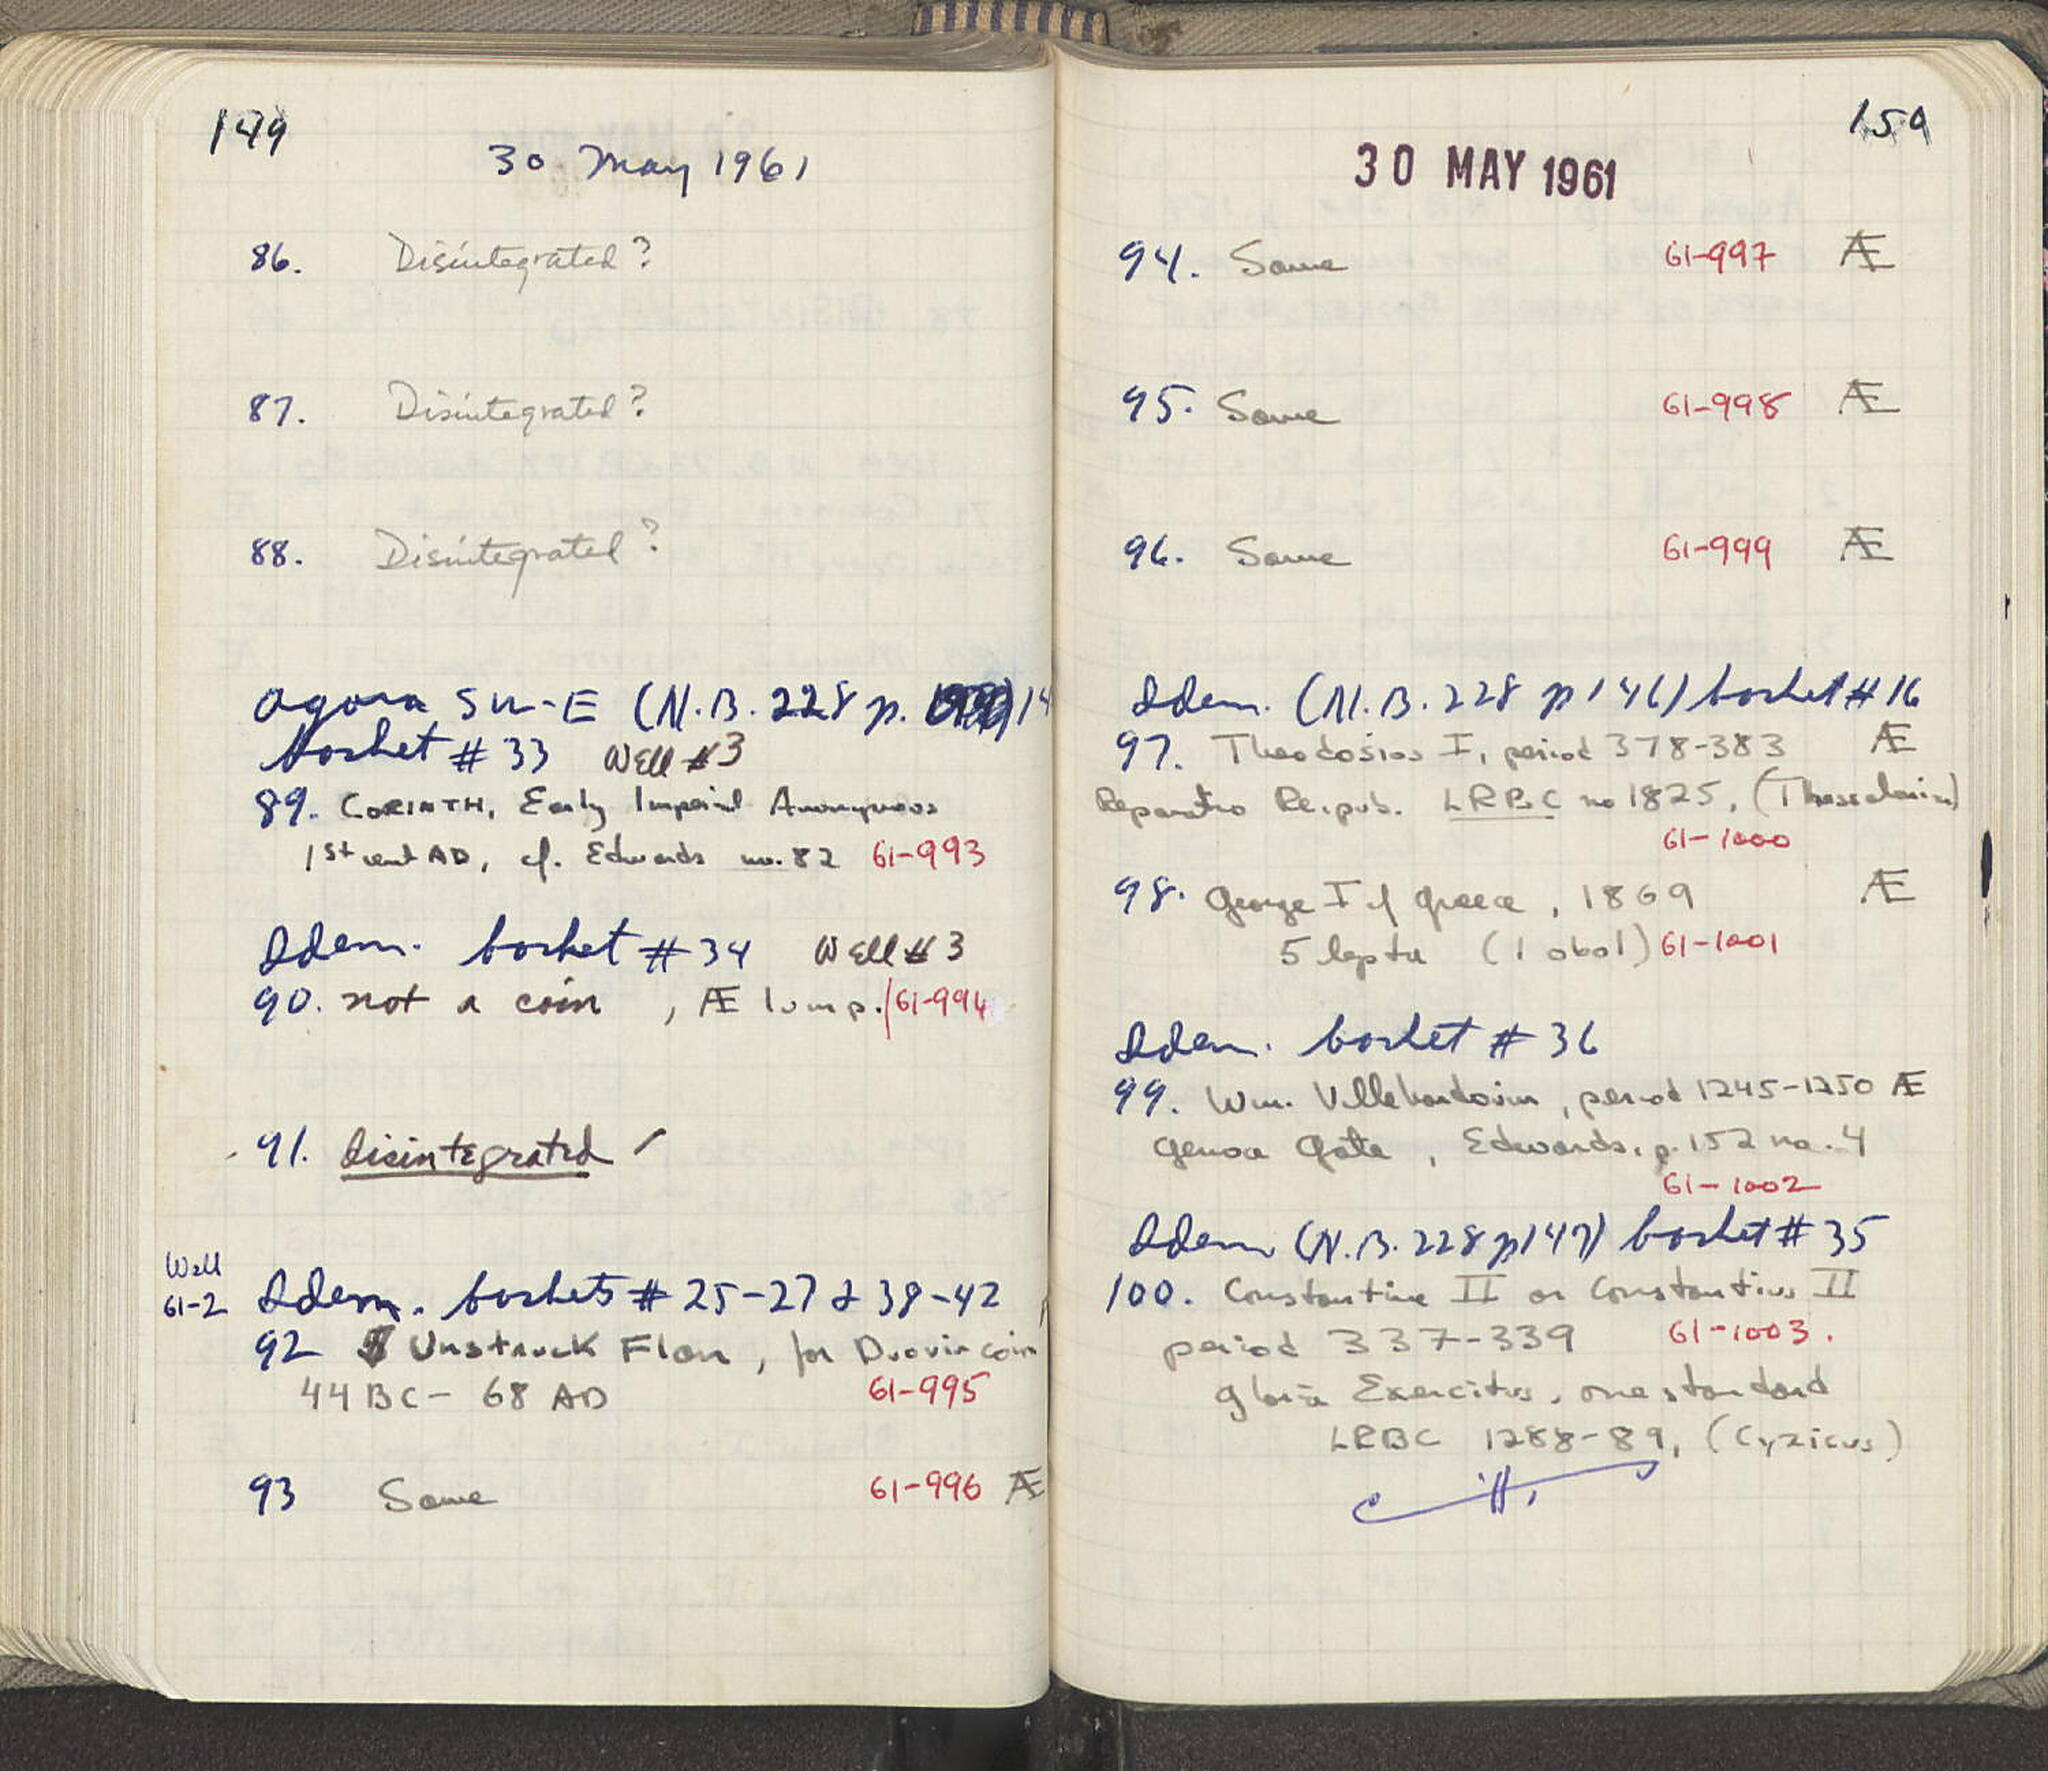 149
30 May 1961
86. Disintegrated?
87. Disintegrated?
88. Disintegrated?
Agora SW-E (N.B. 228 p. 14
basket # 33 Well #3
89. CORINTH, Early Imperial Anonymous
1st cent AD, cf. Edwards no. 82 61-993
Idem. basket # 34 Well #3
90. not a coin, Æ lump. 61-994
91. disintegrated
Well
61-2 Idem. baskets # 25-27 & 38-42
92 Unstruck Flan, for Duovir coin
44 BC - 68 AD 61-995
93 Same 61-996 Æ
150
30 MAY 1961
94. Same 61-997 Æ
95. Same 61-998 Æ
96. Same 61-999 Æ
Idem. (N.B. 228 p 146) basket # 16
97. Theodosius I, period 378-383 Æ
Reparatio Reipub. LRBC no 1825, (Thessalonica)
61-1000
98. George I of Greece, 1869 Æ
5 lepta (1 obol) 61-1001
Idem. basket # 36
99. Wm. Villehardouin, period 1245-1250 Æ
Genoa Gate, Edwards, p. 152 no. 4
61-1002
Idem (N.B. 228 p 147) basket # 35
100. Constantine II or Constantius II
period 337-339 61-1003.
Gloria Exercitus, one standard
LRBC 1288-89, (Cyzicus)